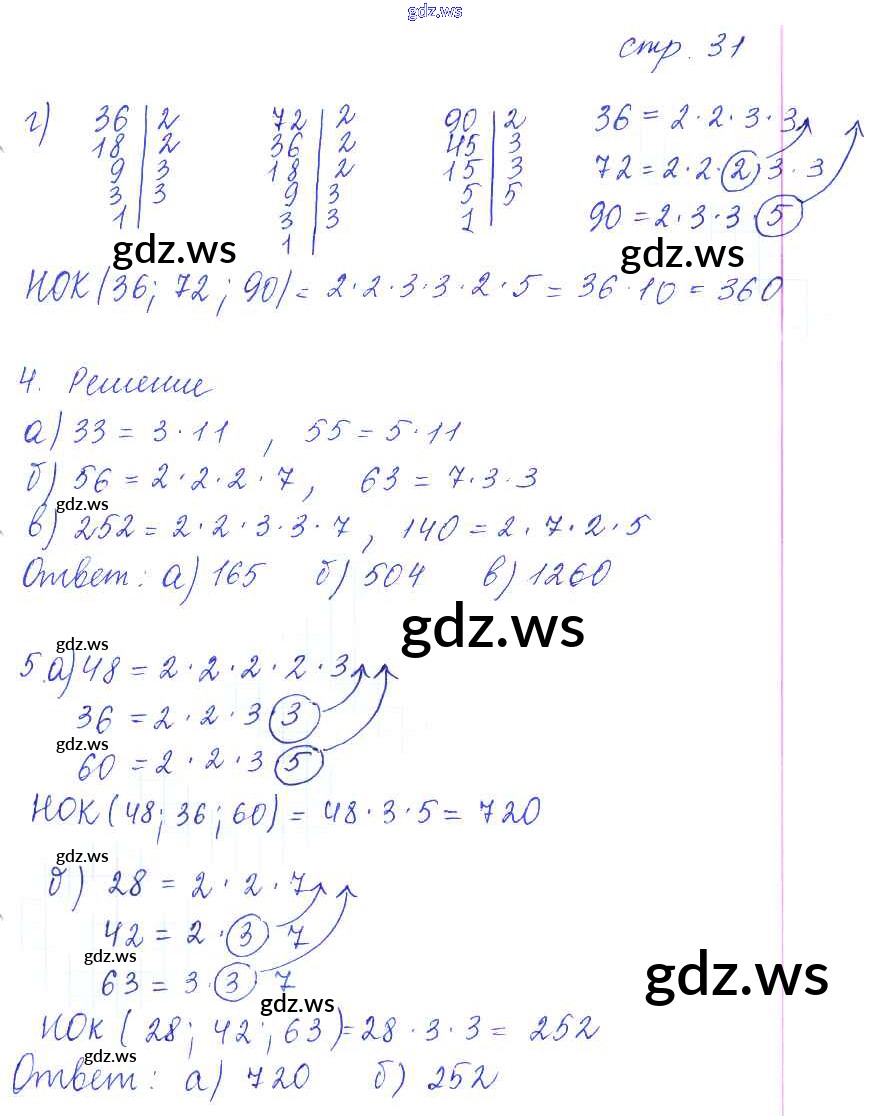 gdz.ws
стр. 31
г) 36 | 2 72 | 2 90 | 2 36 = 2 · 2 · 3 · 3
18 | 2 36 | 2 45 | 3
9 | 3 18 | 2 15 | 3 72 = 2 · 2 · 2 · 3 · 3
3 | 3 9 | 3 5 | 5
1 | 3 | 3 1 | 90 = 2 · 3 · 3 · 5
1 |
gdz.ws gdz.ws
НОК (36; 72; 90) = 2 · 2 · 3 · 3 · 2 · 5 = 36 · 10 = 360
4. Решение
а) 33 = 3 · 11 , 55 = 5 · 11
б) 56 = 2 · 2 · 2 · 7 , 63 = 7 · 3 · 3
gdz.ws
в) 252 = 2 · 2 · 3 · 3 · 7 , 140 = 2 · 7 · 2 · 5
Ответ: а) 165 б) 504 в) 1260
gdz.ws
gdz.ws
5. а) 48 = 2 · 2 · 2 · 2 · 3
36 = 2 · 2 · 3 3
gdz.ws
60 = 2 · 2 · 3 5
НОК (48; 36; 60) = 48 · 3 · 5 = 720
gdz.ws
б) 28 = 2 · 2 · 7
42 = 2 · 3 7
gdz.ws
63 = 3 · 3 7
gdz.ws
gdz.ws
НОК (28; 42; 63) = 28 · 3 · 3 = 252
gdz.ws
Ответ: а) 720 б) 252